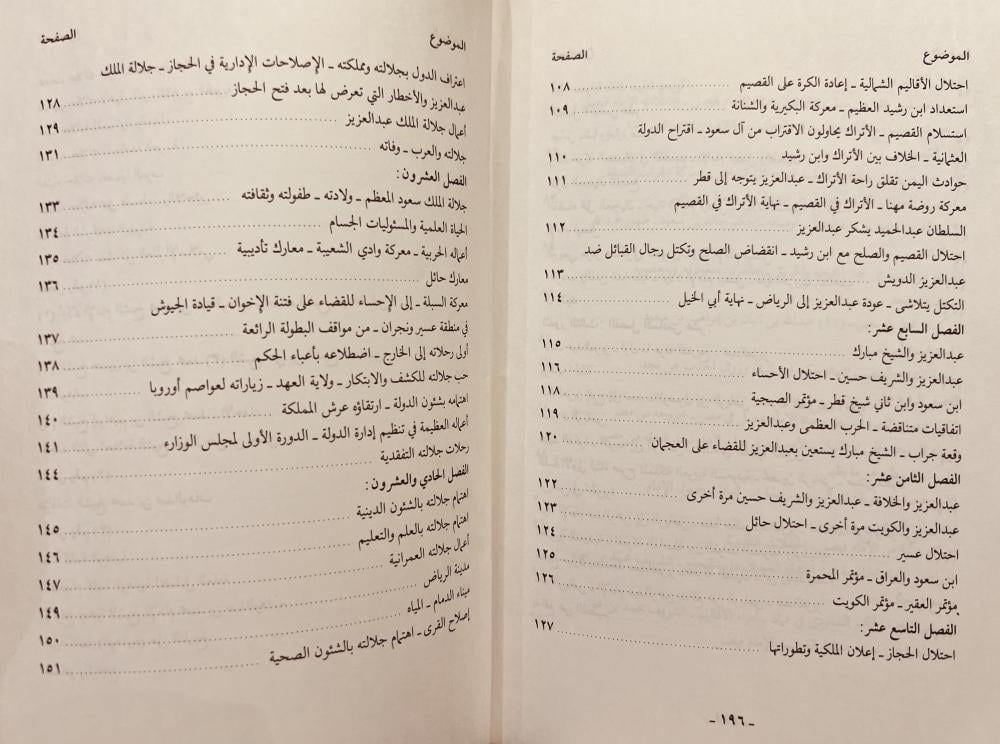 الموضوع الصفحة
احتلال الأقاليم الشمالية ـ إعادة الكرة على القصيم ١٠٨
استعداد ابن رشيد العظيم ـ معركة البكيرية والشنانة ١٠٩
استسلام القصيم ـ الأتراك يحاولون الاقتراب من آل سعود ـ اقتراح الدولة
العثمانية ـ الخلاف بين الأتراك وابن رشيد ١١٠
حوادث اليمن تقلق راحة الأتراك ـ عبدالعزيز يتوجه إلى قطر ١١١
معركة روضة مهنا ـ الأتراك في القصيم ـ نهاية الأتراك في القصيم
السلطان عبدالحميد يشكر عبدالعزيز ١١٢
احتلال القصيم والصلح مع ابن رشيد ـ انقضاض الصلح وتكتل رجال القبائل ضد
عبدالعزيز الدويش ١١٣
التكتل يتلاشى ـ عودة عبدالعزيز إلى الرياض ـ نهاية أبي الخيل ١١٤
الفصل السابع عشر:
عبدالعزيز والشيخ مبارك ١١٥
عبدالعزيز والشريف حسين ـ احتلال الأحساء ١١٦
ابن سعود وابن ثاني شيخ قطر ـ مؤتمر الصبيحية ١١٨
اتفاقيات متناقضة ـ الحرب العظمى وعبدالعزيز ١١٩
وقعة جراب ـ الشيخ مبارك يستعين بعبدالعزيز للقضاء على العجمان ١٢٠
الفصل الثامن عشر:
عبدالعزيز والخلافة ـ عبدالعزيز والشريف حسين مرة أخرى ١٢٢
عبدالعزيز والكويت مرة أخرى ـ احتلال حائل ١٢٣
احتلال عسير ١٢٤
ابن سعود والعراق ـ مؤتمر المحمرة ١٢٥
مؤتمر العقير ـ مؤتمر الكويت ١٢٦
الفصل التاسع عشر:
احتلال الحجاز ـ إعلان الملكية وتطوراتها ١٢٧
ـ ١٩٦ ـ
الموضوع الصفحة
اعتراف الدول بجلالته ومملكته ـ الإصلاحات الإدارية في الحجاز ـ جلالة الملك
عبدالعزيز والأخطار التي تعرض لها بعد فتح الحجاز ١٢٨
أعمال جلالة الملك عبدالعزيز ١٢٩
جلالته والعرب ـ وفاته ١٣١
الفصل العشرون:
جلالة الملك سعود المعظم ـ ولادته ـ طفولته وثقافته ١٣٣
الحياة العلمية والمسئوليات الجسام ١٣٤
أعماله الحربية ـ معركة وادي الشعيبة ـ معارك تأديبية ١٣٥
معارك حائل ١٣٦
معركة السبلة ـ إلى الإحساء للقضاء على فتنة الإخوان ـ قيادة الجيوش
في منطقة عسير ونجران ـ من مواقف البطولة الرائعة ١٣٧
أولى رحلاته إلى الخارج ـ اضطلاعه بأعباء الحكم ١٣٨
حب جلالته للكشف والابتكار ـ ولاية العهد ـ زياراته لعواصم أوروبا ١٣٩
اهتمامه بشئون الدولة ـ ارتقاؤه عرش المملكة ١٤٠
أعماله العظيمة في تنظيم إدارة الدولة ـ الدورة الأولى لمجلس الوزراء ١٤١
رحلات جلالته التفقدية ١٤٤
الفصل الحادي والعشرون:
اهتمام جلالته بالشئون الدينية ١٤٥
اهتمام جلالته بالعلم والتعليم ١٤٦
أعمال جلالته العمرانية ١٤٧
مدينة الرياض ١٤٩
ميناء الدمام ـ المياه ١٥٠
إصلاح القرى ـ اهتمام جلالته بالشئون الصحية ١٥١